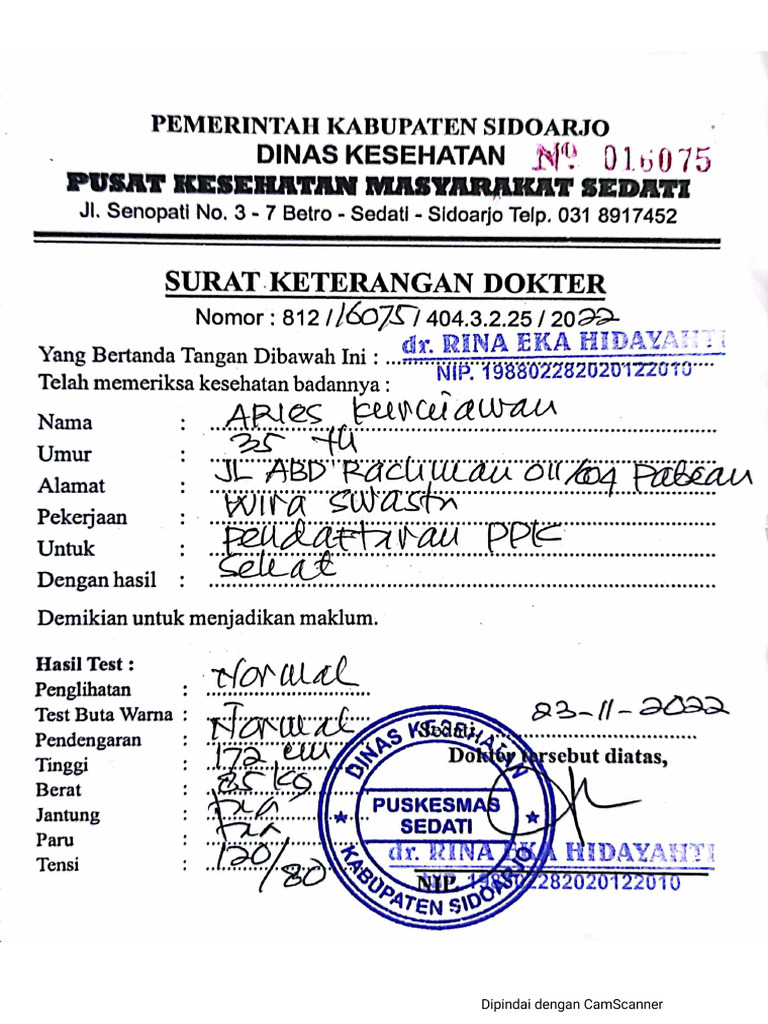 PEMERINTAH KABUPATEN SIDOARJO
DINAS KESEHATAN No 016075
PUSAT KESEHATAN MASYARAKAT SEDATI
Jl. Senopati No. 3 - 7 Betro - Sedati - Sidoarjo Telp. 031 8917452
SURAT KETERANGAN DOKTER
Nomor : 812 / 16075 / 404.3.2.25 / 2022
Yang Bertanda Tangan Dibawah Ini : dr. RINA EKA HIDAYAHTI
NIP. 198802282020122010
Telah memeriksa kesehatan badannya :
Nama : ARIES Kurniawan
Umur : 35 th
Alamat : JL ABD Rachman 011/004 Pabean
Pekerjaan : Wira Swasta
Untuk : Pendaftaran PPK
Dengan hasil : Sehat
Demikian untuk menjadikan maklum.
Hasil Test :
Penglihatan : Normal
Test Buta Warna :
Pendengaran : Normal
Tinggi : 172 cm
Berat : 85 kg
Jantung :
Paru :
Tensi : 120/80
Sedati, 23-11-2022
Dokter tersebut diatas,
dr. RINA EKA HIDAYAHTI
NIP. 198802282020122010
DINAS KESEHATAN
PUSKESMAS
SEDATI
KABUPATEN SIDOARJO
Dipindai dengan CamScanner